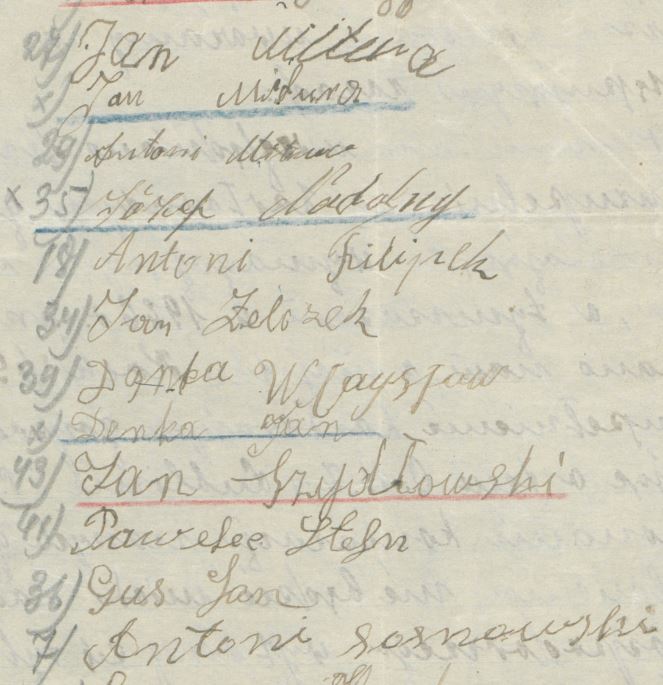 27) Jan Mitura
x) Jan Mitura
29) Antoni Mitura
x 35) Józep Nadolny
18) Antoni Filipek
34) Jan Żelozek
39) Denka W
x) Denka Jan
43) Jan Szydłowski
41) Pawelec Stefn
36) Gus Jan
7) Antoni sosnowski